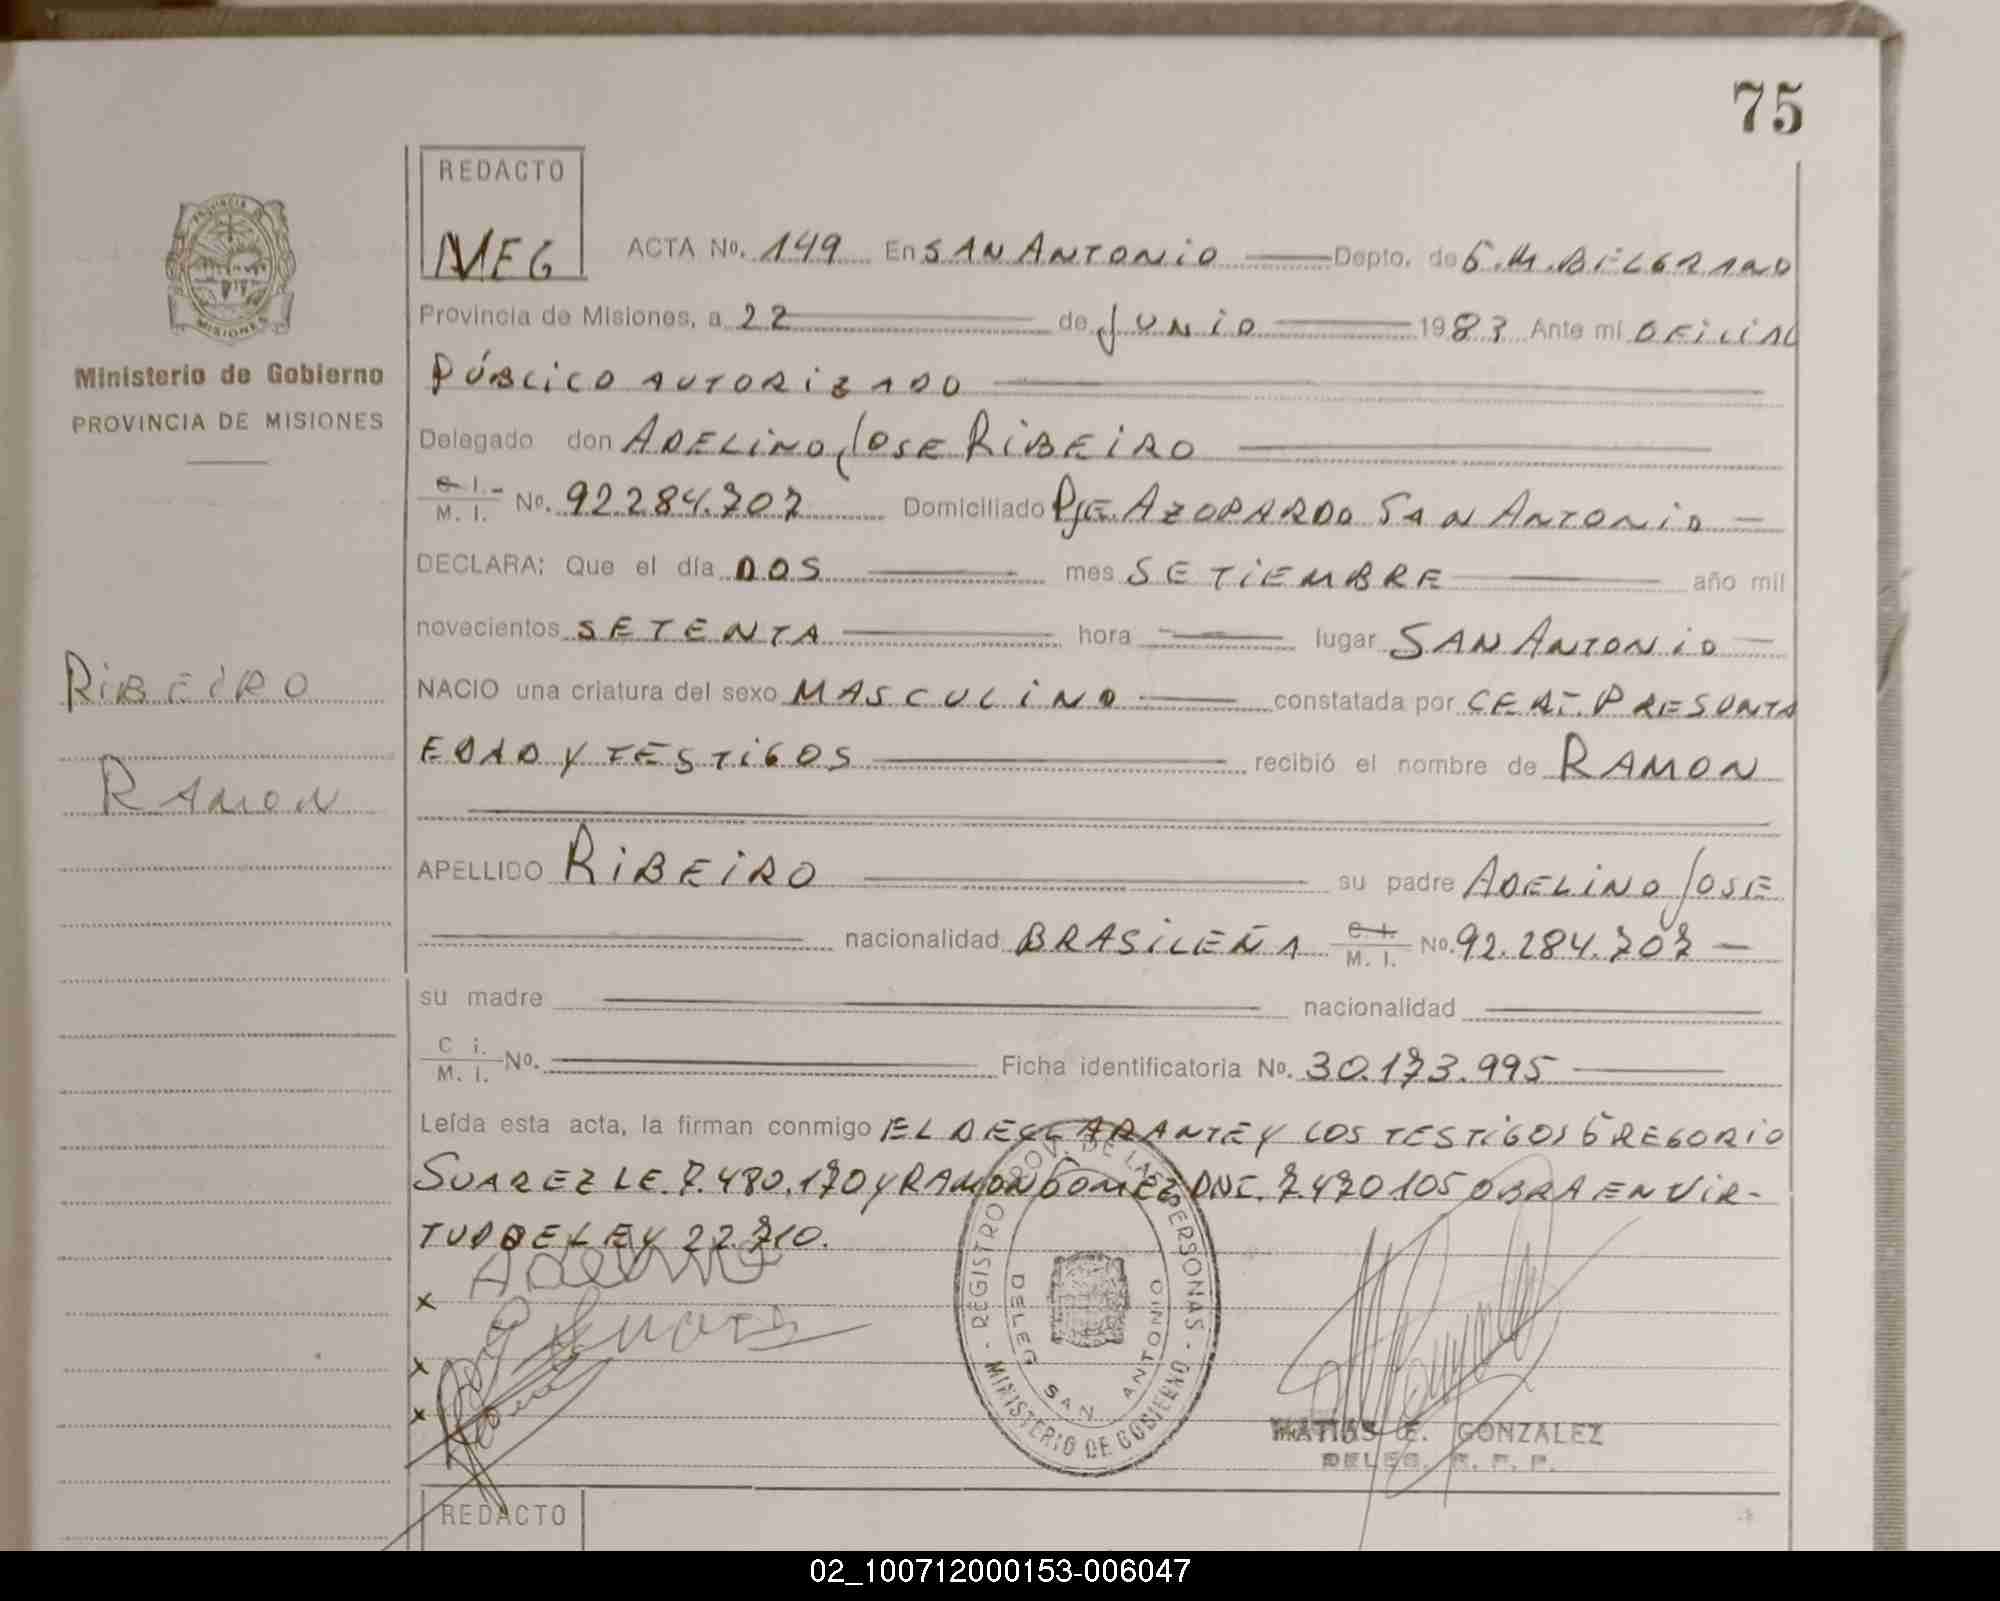 75
REDACTO
MEG
ACTA No. 149 En SAN ANTONIO Depto. de G.M.BELGRANO
Provincia de Misiones, a 22 de JUNIO 1983 Ante mí OFICIAL
PÚBLICO AUTORIZADO
Ministerio de Gobierno
PROVINCIA DE MISIONES
Delegado don ADELINO JOSE RIBEIRO
C. I. M. I. No. 92284.707 Domiciliado PJE. AZOPARDO SAN ANTONIO
DECLARA: Que el día DOS mes SETIEMBRE año mil
novecientos SETENTA hora lugar SAN ANTONIO
RIBEIRO
NACIO una criatura del sexo MASCULINO constatada por CERT. PRESUNTA
EDAD Y TESTIGOS recibió el nombre de RAMON
RAMON
APELLIDO RIBEIRO su padre ADELINO JOSE
nacionalidad BRASILEÑA C. I. M. I. No. 92.284.707
su madre nacionalidad
C i. M. I. No. Ficha identificatoria No. 30.173.995
Leída esta acta, la firman conmigo EL DECLARANTE Y LOS TESTIGOS GREGORIO
SUAREZ LE.7.480.170 Y RAMON GOMEZ DNI.7.470105 OBRA EN VIR-
TUD DE LEY 22.710.
Adelino
x
x
x
REGISTRO PROV. DE LAS PERSONAS
DELEG SAN ANTONIO
MINISTERIO DE GOBIERNO
MATIAS E. GONZALEZ
DELEG. R. P. P.
REDACTO
02_100712000153-006047